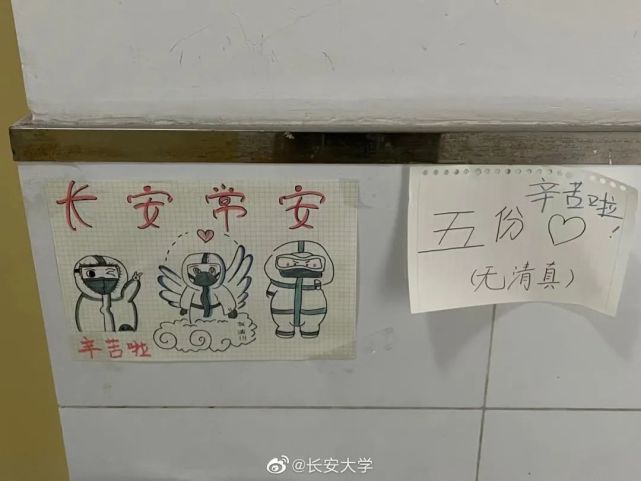 长安常安
加油!!!
辛苦啦
辛苦啦!
五份
(无清真)
@长安大学